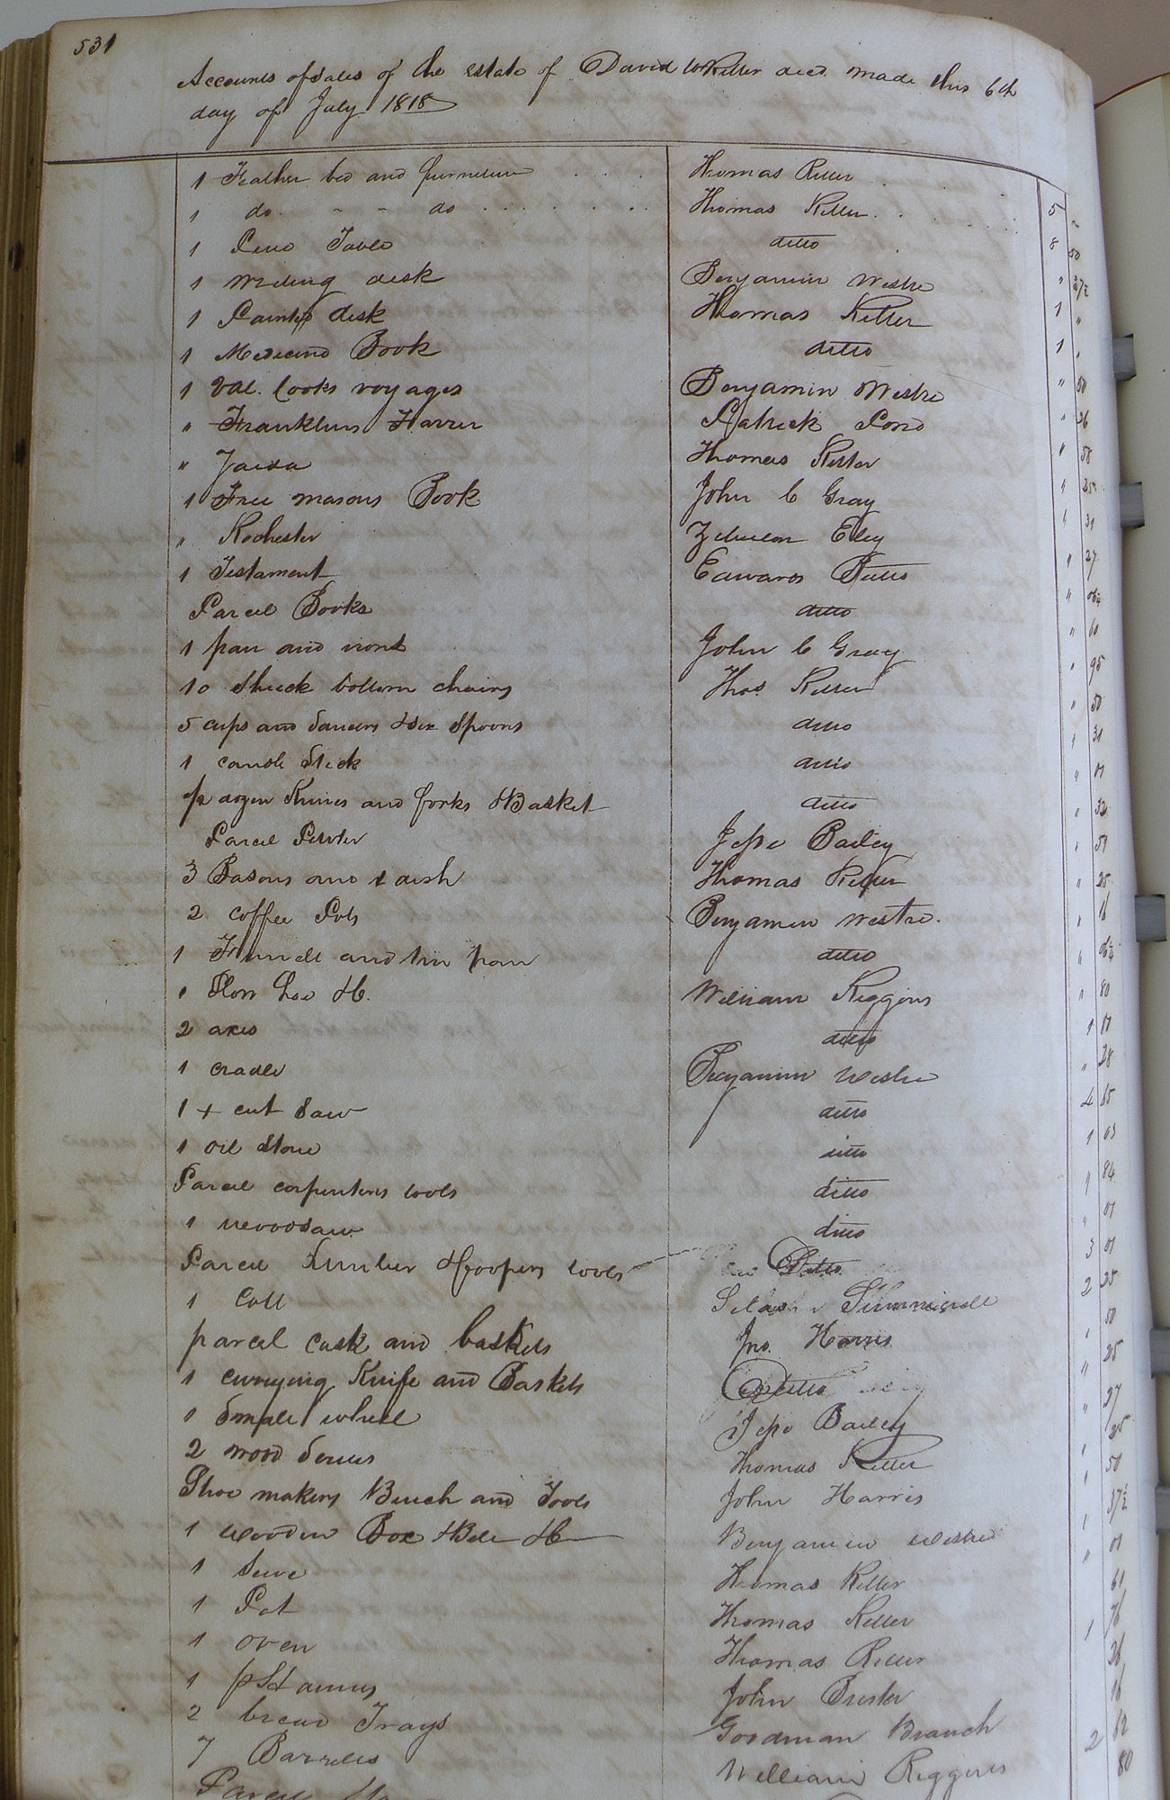 531
Accounts of Sales of the estate of David W Keller decd made this 6th
day of July 1818
1 Feather bed and furniture Thomas Keller
1 do - - do Thomas Keller 5
1 Pine Table ditto 8 50
1 Writing desk Benjamin Westre " 37½
1 Painted desk Thomas Keller 1 "
1 Medicine Book ditto 1 "
1 Vol. Cooks voyages Benjamin Westre " 50
" Franklins Patrick Pond " 26
" Thomas Keller " 58
1 Free masons Book John C Gray 25
" Rochester Zebulon Eley 31
1 Testament Edward Butts 27
Parcel Books ditto " 06¼
1 pair and irons John C Gray " 60
10 Shuck bottom chairs Thos Keller 95
5 cups and Saucers & Six Spoons ditto " 50
1 candle Stick ditto 31
½ dozen Knives and forks & Basket ditto
Parcel Pewter Jesse Bailey
3 Basons and 1 dish Thomas Keller 25
2 coffee Pots Benjamin Westre. 16
1 Funnell and tin pan ditto 06¼
1 Plow hoe &c. William Riggins 80
2 axes ditto 1
1 cradle Benjamin Westre " 28
1 + cut Saw ditto 4 65
1 oil Stone ditto 1 03
Parcel carpenters tools ditto 1 84
1 ditto " 01
Parcel Lumber & Coopers tools Ditto 3 01
1 Colt Silas Summerell 2 25
parcel cask and baskets Jno. Harris 50
1 currying Knife and Baskets Ditto 25
1 Small wheel Jesse Bailey 37
2 wood Thomas Keller 50
Shoe makers Bench and Tools John Harris 37½
1 wooden Box & Bell &c Benjamin Westre 01
1 Sieve Thomas Keller 61
1 Pot Thomas Keller 1 76
1 oven Thomas Keller 26
1 pr Stamers John 16
2 bread Trays Goodman Branch 62
7 Barrells William Riggins 2 80
Parcel